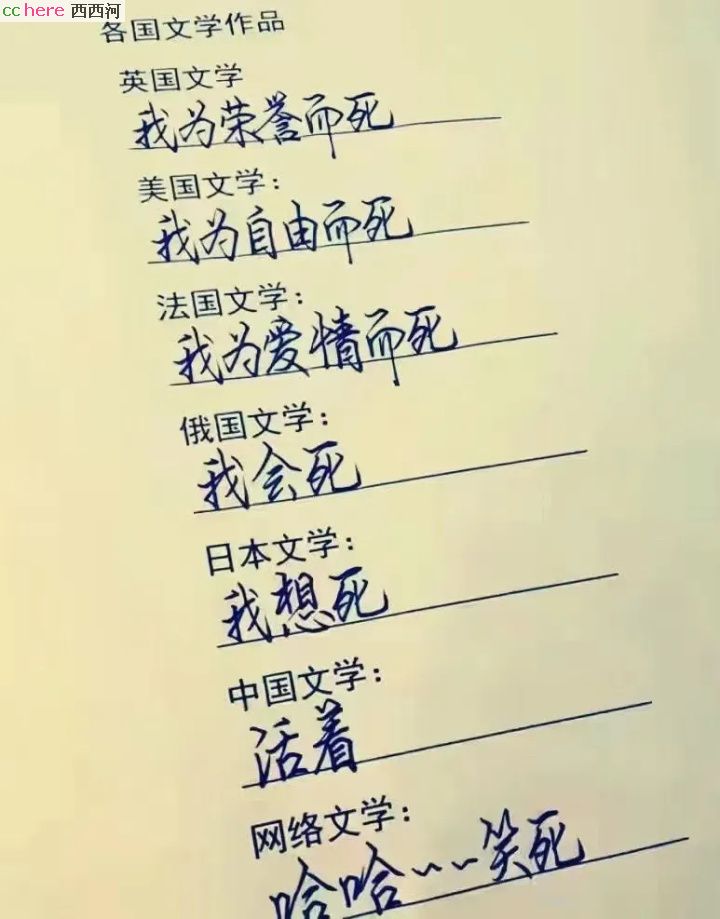 cchere 西西河
各国文学作品
英国文学
我为荣誉而死
美国文学：
我为自由而死
法国文学：
我为爱情而死
俄国文学：
我会死
日本文学：
我想死
中国文学：
活着
网络文学：
哈哈、、笑死